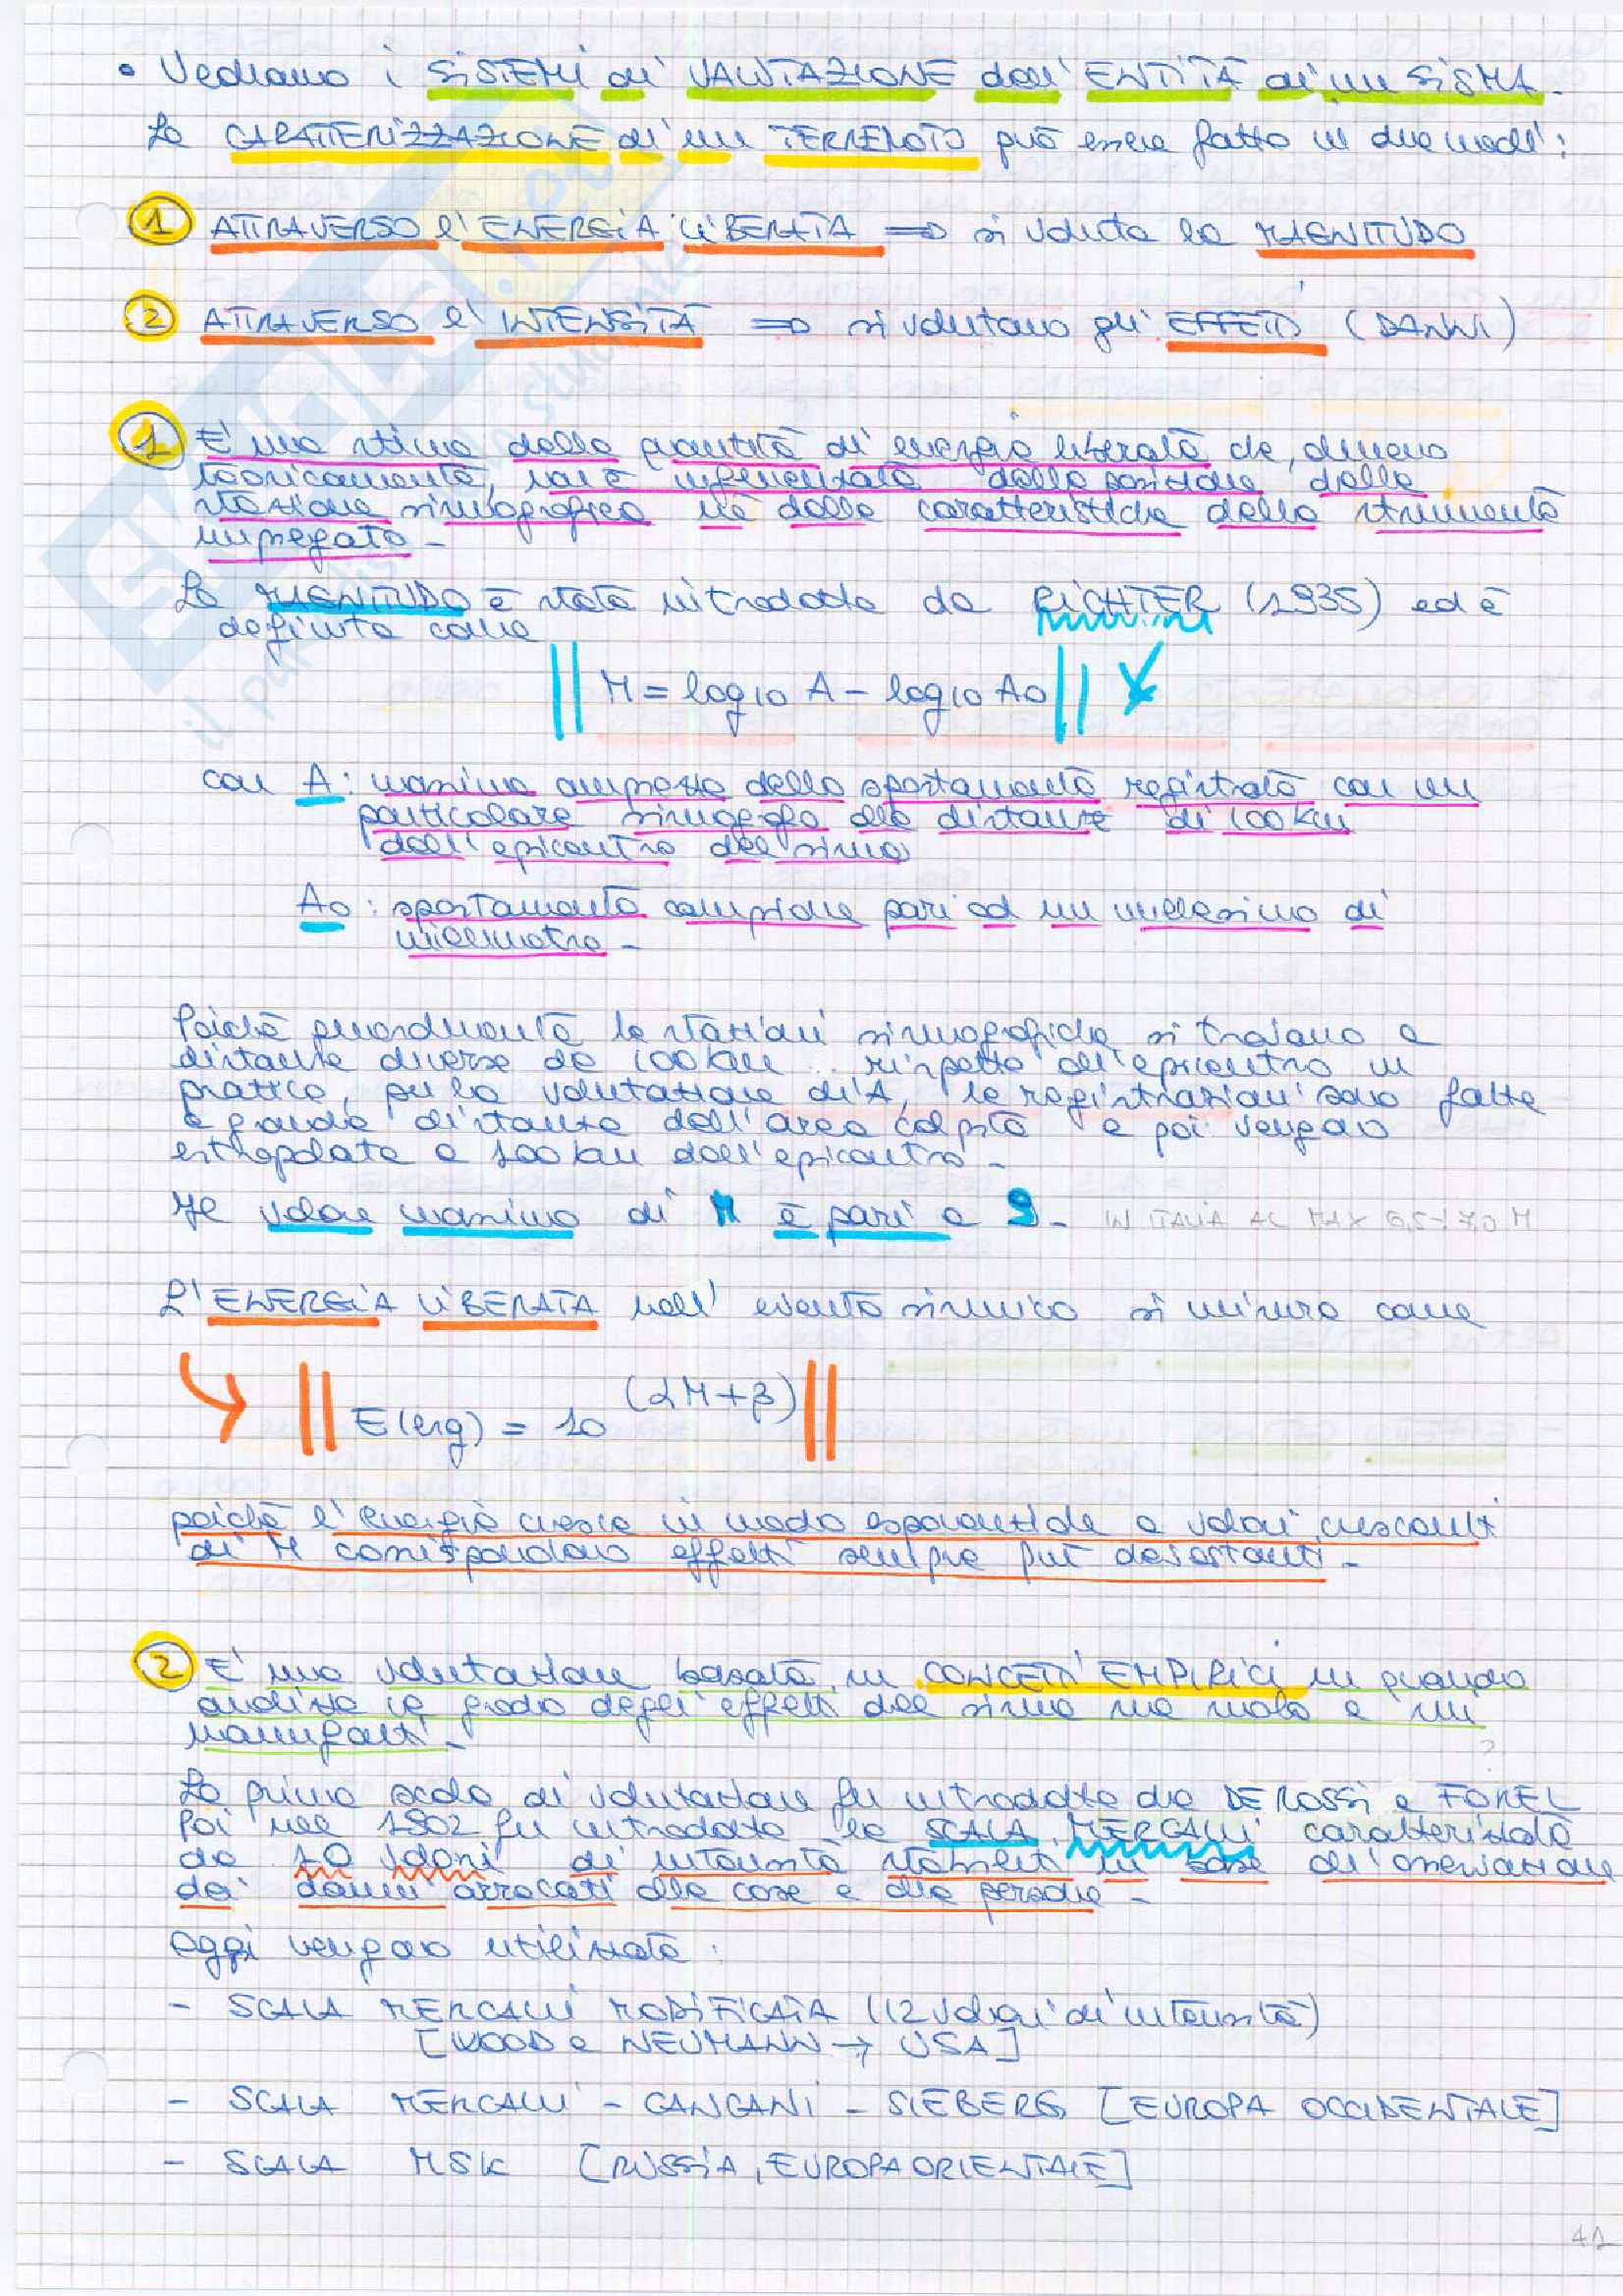 • Vediamo i SISTEMI di VALUTAZIONE dell'ENTITÀ di un SISMA.
La CARATTERIZZAZIONE di un TERREMOTO può essere fatto in due modi:
1 ATTRAVERSO l'ENERGIA LIBERATA => si valuta la MAGNITUDO
2 ATTRAVERSO l'INTENSITÀ => si valutano gli EFFETTI (DANNI)
1 E' una stima della quantità di energia liberata che, almeno
teoricamente, non è influenzata dalla posizione della
stazione sismografica né dalle caratteristiche dello strumento
impiegato.
La MAGNITUDO è stata introdotta da RICHTER (1935) ed è
definita come
M = log10 A - log10 A0
con A: massima ampiezza dello spostamento registrato con un
particolare sismografo alla distanza di 100 km
dall'epicentro del sisma
A0: spostamento campione pari ad un millesimo di
millimetro.
Poiché generalmente le stazioni sismografiche si trovano a
distanze diverse da 100 km rispetto all'epicentro in
pratica, per la valutazione di A, le registrazioni sono fatte
a grande distanza dall'area colpita e poi vengono
estrapolate a 100 km dall'epicentro.
Il valore massimo di M è pari a 9. IN ITALIA AL MAX 6,5÷7,0 M
L'ENERGIA LIBERATA nell'evento sismico si misura come
E(erg) = 10 (αM+β)
poiché l'energia cresce in modo esponenziale a valori crescenti
di M corrispondono effetti sempre più devastanti.
2 E' una valutazione basata su CONCETTI EMPIRICI in quanto
analizza il grado degli effetti del sisma sul suolo e sui
manufatti.
?
La prima scala di valutazione fu introdotta da DE ROSSI e FOREL
Poi nel 1902 fu introdotta la SCALA MERCALLI caratterizzata
da 10 valori di intensità stabiliti in base all'osservazione
dei danni arrecati alle cose e alle persone.
Oggi vengono utilizzate:
- SCALA MERCALLI MODIFICATA (12 valori di intensità)
[WOOD e NEUMANN → USA]
- SCALA MERCALLI - CANCANI - SIEBERG [EUROPA OCCIDENTALE]
- SCALA MSK [RUSSIA, EUROPA ORIENTALE]
41